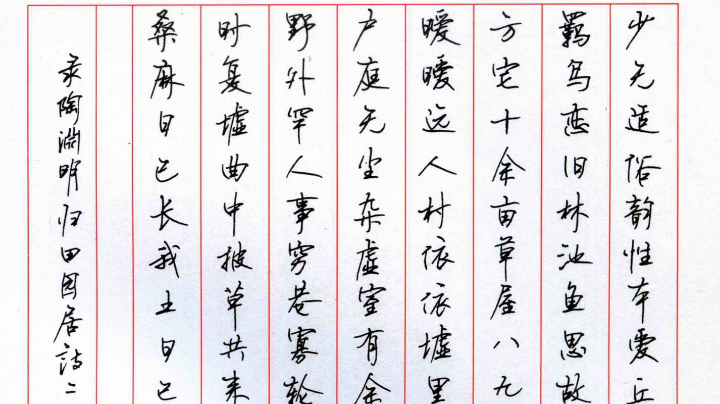 少无适俗韵性本爱丘
羁鸟恋旧林池鱼思故
方宅十余亩草屋八九
暧暧远人村依依墟里
户庭无尘杂虚室有余
野外罕人事穷巷寡轮
时复墟曲中披草共来
桑麻日已长我土日已
录陶渊明归田园居诗二